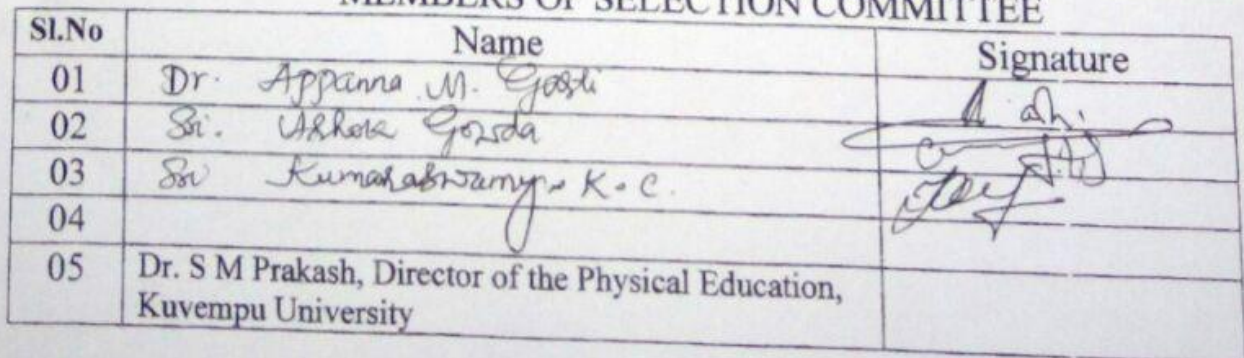 MEMBERS OF SELECTION COMMITTEE
Sl.No Name Signature
01 Dr. Appanna M.
02 Sri. Ashoka Gowda
03 Sri Kumaraswamy K.C.
04
05 Dr. S M Prakash, Director of the Physical Education,
Kuvempu University